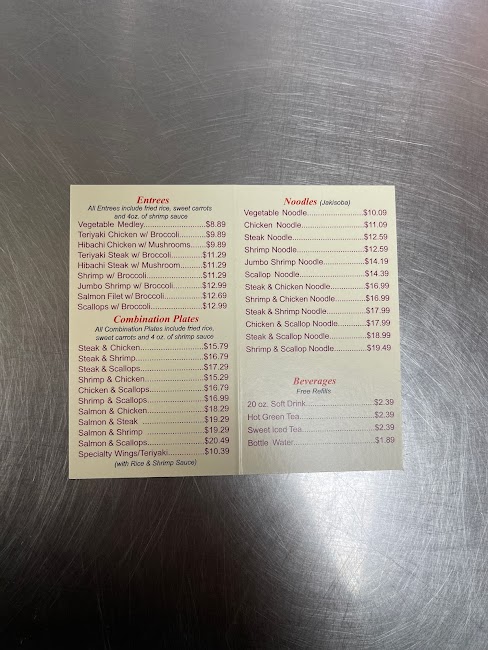 Entrees
All Entrees include fried rice, sweet carrots
and 4oz. of shrimp sauce
Vegetable Medley..........................$8.89
Teriyaki Chicken w/ Broccoli............$9.89
Hibachi Chicken w/ Mushrooms......$9.89
Teriyaki Steak w/ Broccoli.............$11.29
Hibachi Steak w/ Mushroom.........$11.29
Shrimp w/ Broccoli.......................$11.29
Jumbo Shrimp w/ Broccoli............$12.99
Salmon Filet w/ Broccoli...............$12.69
Scallops w/ Broccoli.....................$12.99
Combination Plates
All Combination Plates include fried rice,
sweet carrots and 4 oz. of shrimp sauce
Steak & Chicken..........................$15.79
Steak & Shrimp............................$16.79
Steak & Scallops..........................$17.29
Shrimp & Chicken........................$15.29
Chicken & Scallops......................$16.79
Shrimp & Scallops........................$16.99
Salmon & Chicken........................$18.29
Salmon & Steak ..........................$19.29
Salmon & Shrimp ........................$19.29
Salmon & Scallops.......................$20.49
Specialty Wings/Teriyaki...............$10.39
(with Rice & Shrimp Sauce)
Noodles (Jakisoba)
Vegetable Noodle........................$10.09
Chicken Noodle...........................$11.09
Steak Noodle..............................$12.59
Shrimp Noodle............................$12.59
Jumbo Shrimp Noodle.................$14.19
Scallop Noodle............................$14.39
Steak & Chicken Noodle..............$16.99
Shrimp & Chicken Noodle............$16.99
Steak & Shrimp Noodle...............$17.99
Chicken & Scallop Noodle...........$17.99
Steak & Scallop Noodle...............$18.99
Shrimp & Scallop Noodle.............$19.49
Beverages
Free Refills
20 oz. Soft Drink..........................$2.39
Hot Green Tea.............................$2.39
Sweet Iced Tea............................$2.39
Bottle Water................................$1.89